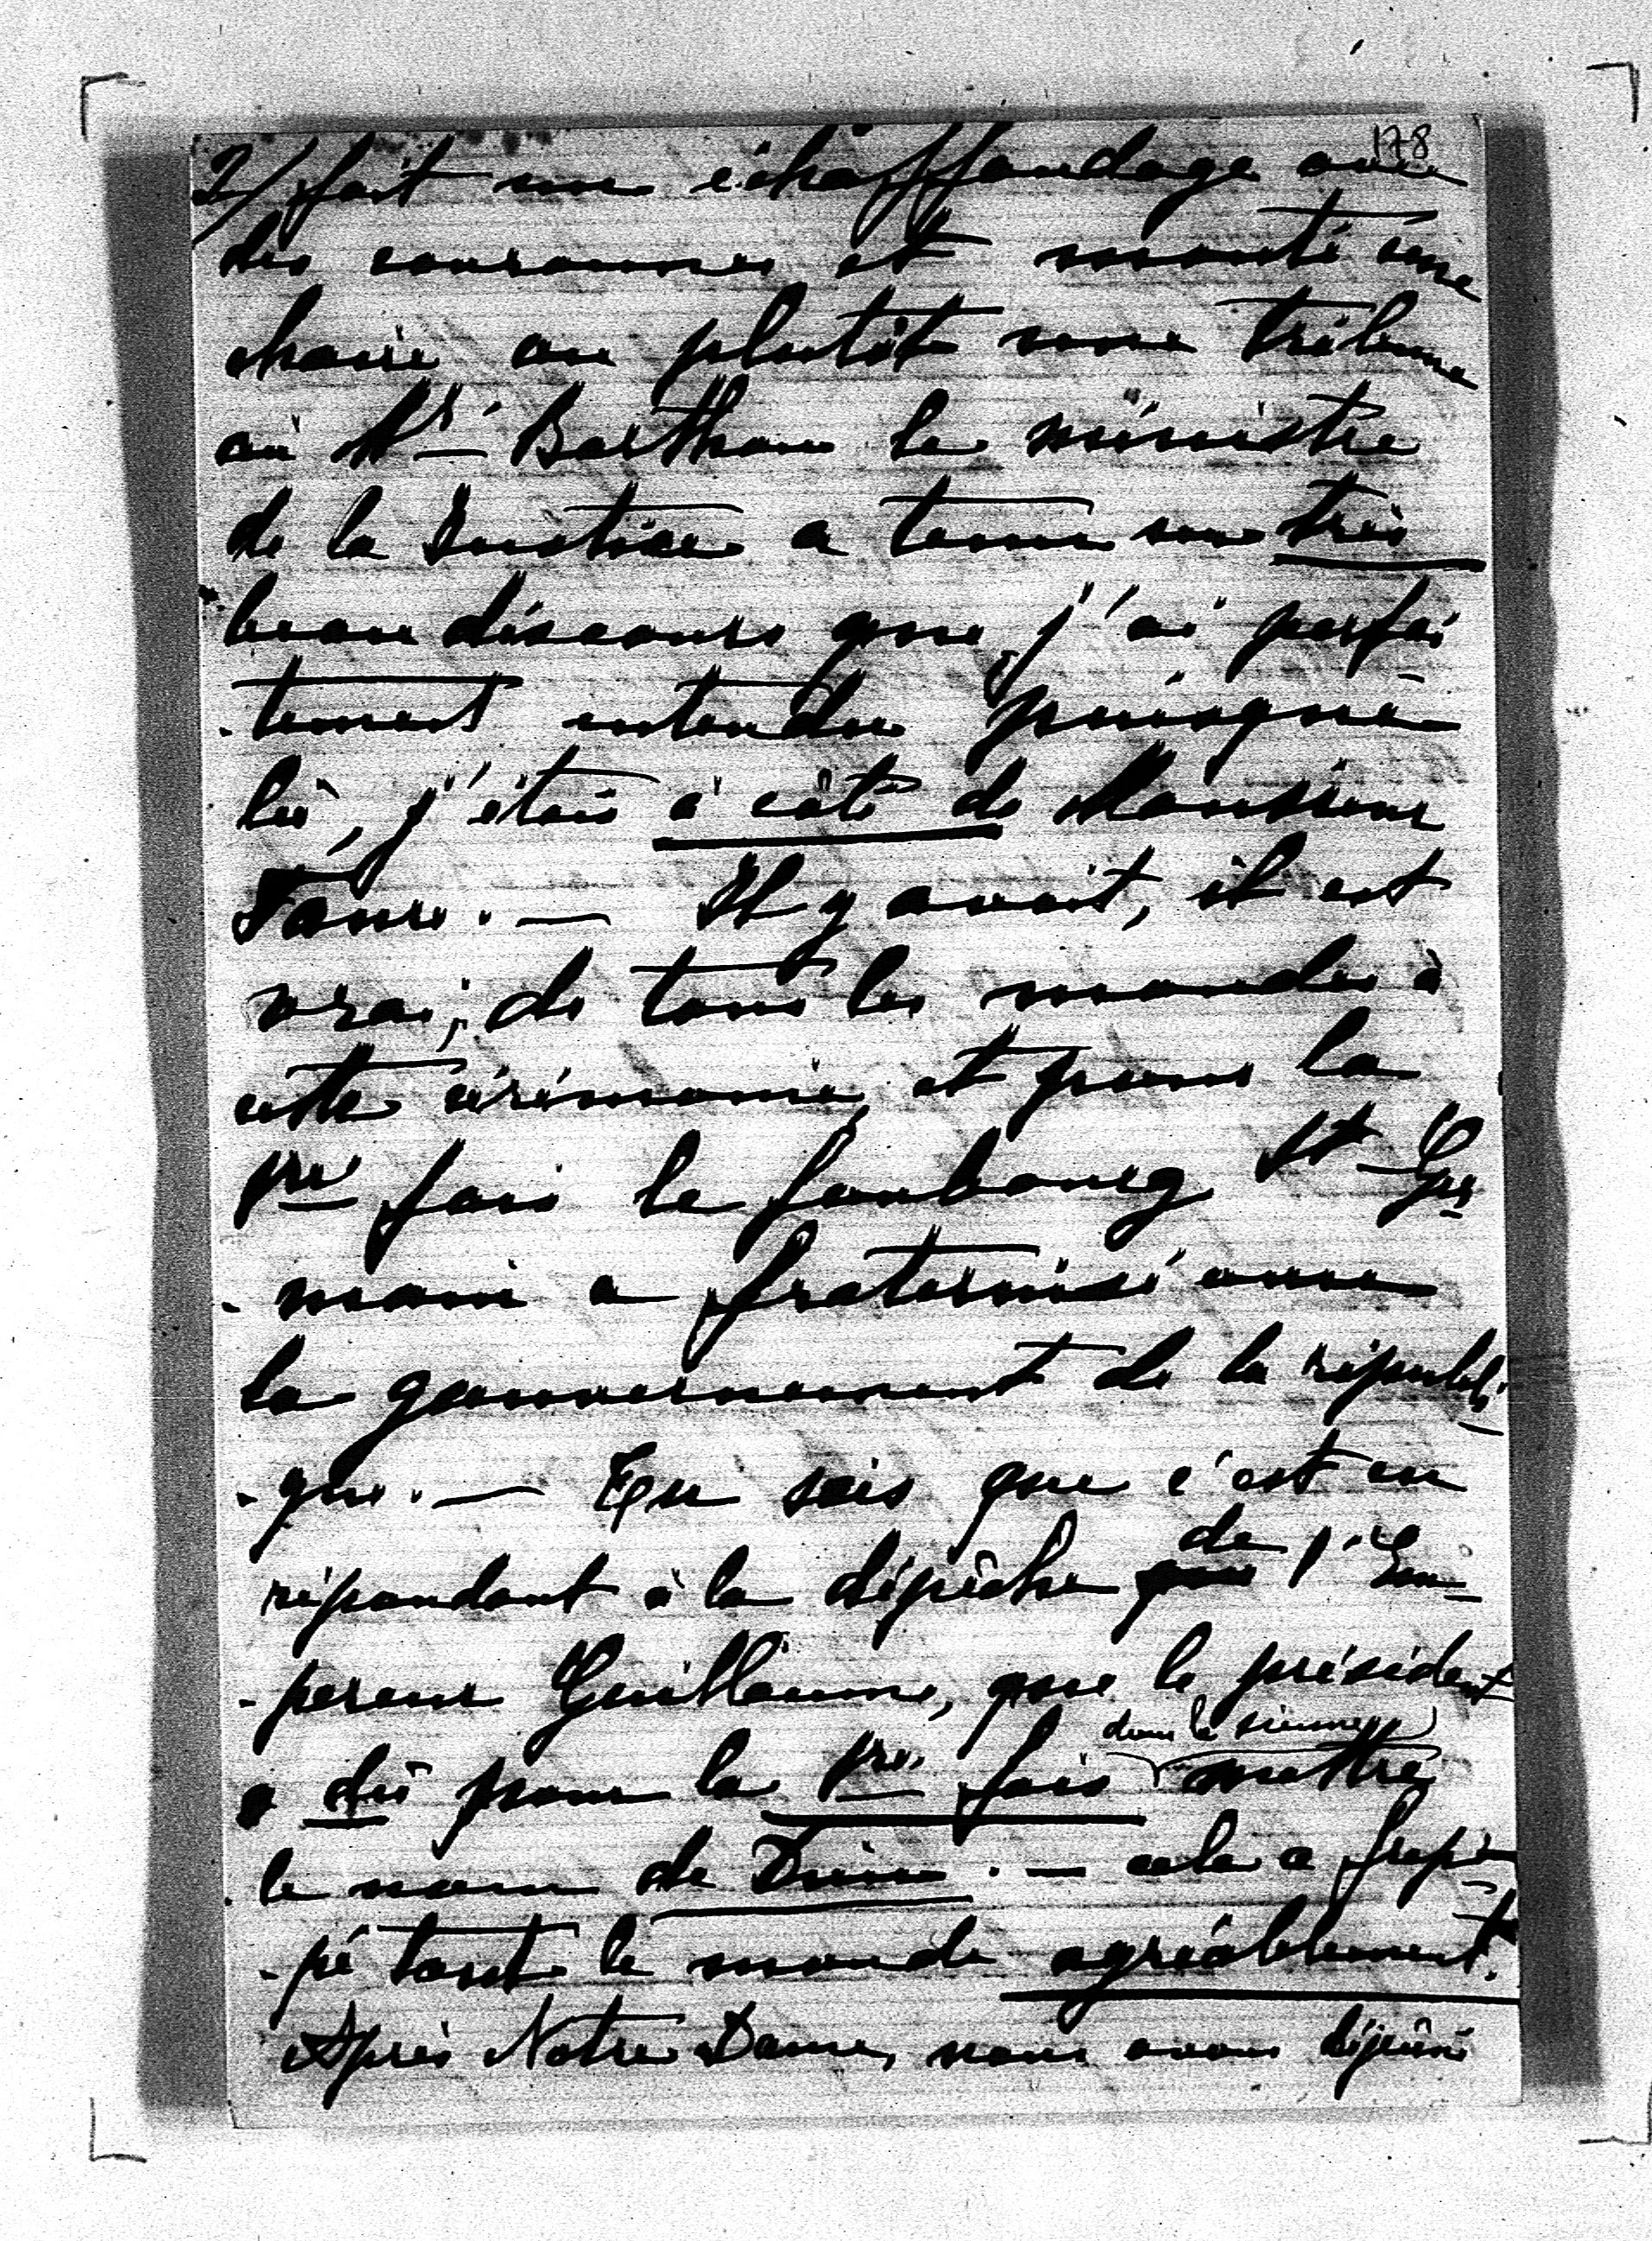 178
2/ fait un échaffaudage avec
des couronnes et monté une
chaire ou plutôt une tribune
où Mr Barthou le ministre
de la Justice a tenu un très
beau discours que j'ai parfai
-tement entendu puisque
là, j'étais à côté de Monsieur
Faure. — Il y avait, il est
vrai, de tous les mondes à
cette cérémonie, et pour la
1ère fois le faubourg St Ger
-main a fraternisé avec
le gouvernement de la républi
-que. — Tu sais que c'est en
répondant à la dépêche de l'Em
-pereur Guillaume, que le président
a dû pour la 1ère fois dans la sienne mettre
le nom de Dieu. — cela a frap
-pé tout le monde agréablement.
Après Notre Dame, nous avons déjeuné